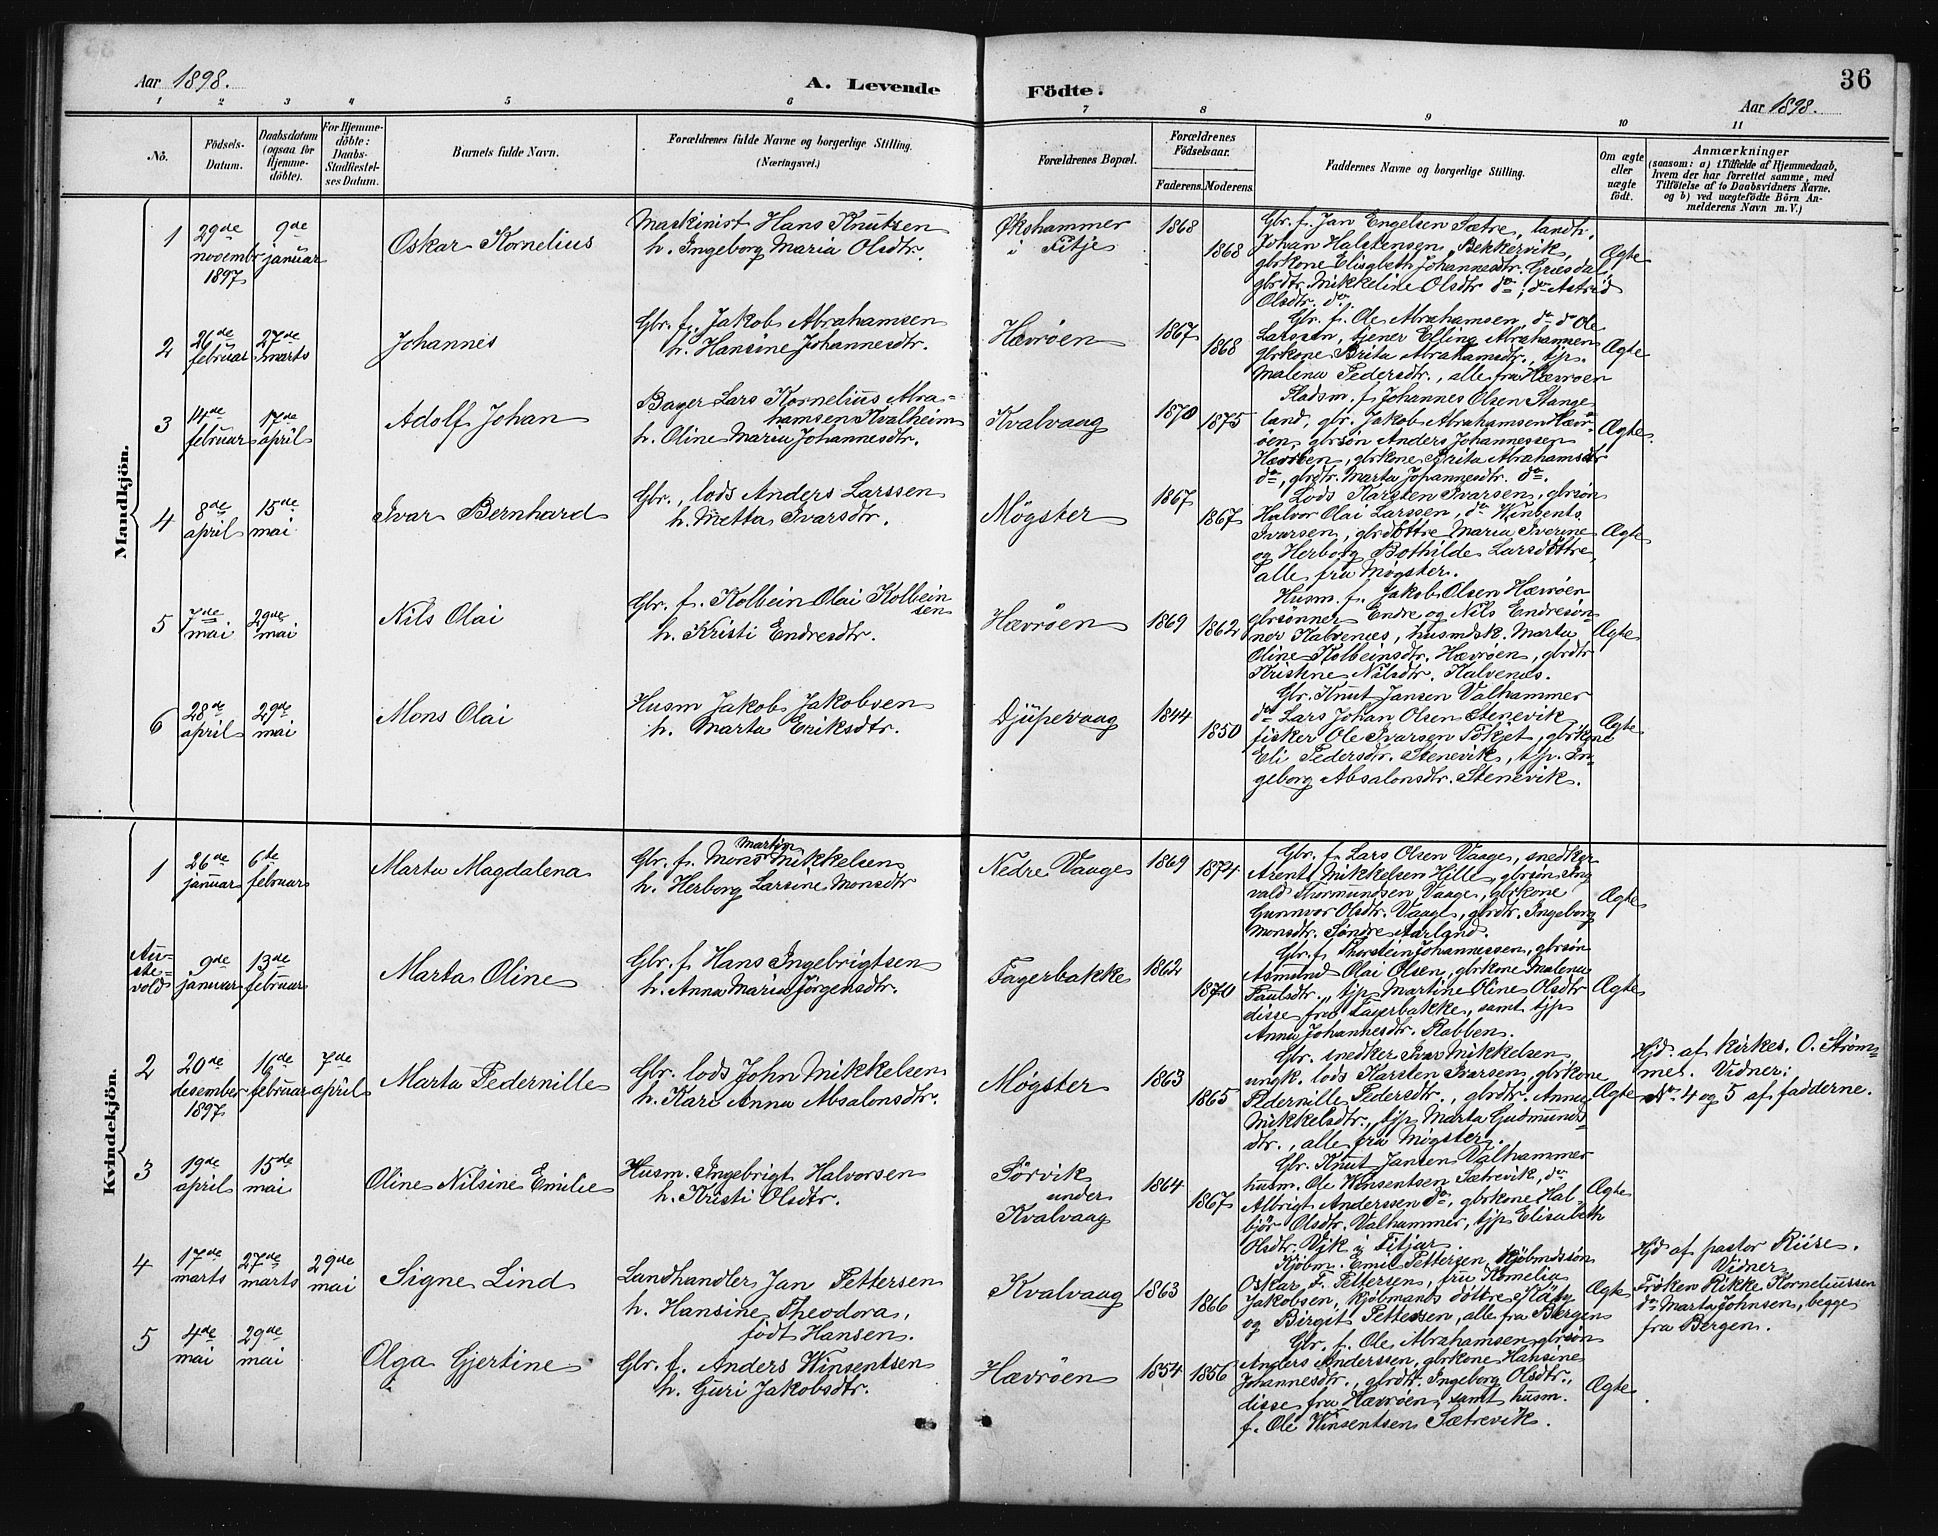 36
Aar 1898.
A. Levende Födte.
Aar 1898.
1 2 3 4 5 6 7 8 9 10 11
No.
Födsels-Datum.
Daabsdatum (ogsaa for Hjemme-döbte).
For Hjemme-döbte: Daabs-Stadfæstel-ses Datum.
Barnets fulde Navn.
Forældrenes fulde Navne og borgerlige Stilling.
(Næringsvei.)
Forældrenes Bopæl.
Forældrenes Födselsaar.
Faderens. Moderens.
Faddernes Navne og borgerlige Stilling.
Om ægte eller uægte födt.
Anmærkninger
(saasom: a) i Tilfælde af Hjemmedaab,
hvem der har forrettet samme, med
Tilföielse af to Daabsvidners Navne.
og b) ved uægtefödte Börn An-
melderens Navn m. V.)
Mandkjön.
1
29de novembr 1897
9de januar
Oskar Kornelius
Maskinist Hans Knutsen
h. Ingeborg Maria Olsdtr.
Økshammer
i Fitje
1868
1868
Gbr. f. Jan Engelsen Sætre, landh.
Johan Halstensen, Bekkervik,
gbrkone Elisabeth Johannesdtr. Græsdal,
gbrdtr. Mikkeline Olsdtr do; do Astrid
Olsdtr. do
Ægte
2
26de februar
27de marts
Johannes
Gbr. f. Jakob Abrahamsen
h. Hansine Johannesdtr.
Hævröen
1867
1868
Gbr. f. Ole Abrahamsen, do do Ole
Larssen, tjener Elling Abrahamsen
gbrkone Brita Abrahamsdtr., tjp.
Malena Pedersdtr., alle fra Hævröen
Ægte
3
14de februar
17de april
Adolf Johan
Bager Lars Kornelius Abra-
hamsen Kvalheim
h. Oline Maria Johannesdtr.
Kvalvaag
1870
1875
Pladsm. f. Johannes Olsen Stange
land, gbr. Jakob Abrahamsen Hævr-
öen, gbrsön Anders Johannessen
Hævröen, gbrkone Brita Abrahamsdtr
do, gbrdtr. Marta Johannesdtr. do.
Ægte.
4
8de april
15de mai
Ivar Bernhard
Gbr., lods Anders Larssen
h. Metta Ivarsdtr.
Møgster
1867
1867
Lods Karsten Ivarsen, gbrsön
Halvor Olai Larssen, do Winbents
Ivarsen, gbrdöttre Maria Iverine
og Herborg Bothilde Larsdöttre,
alle fra Møgster.
Ægte
5
7de mai
29de mai
Nils Olai
Gbr. f. Kolbein Olai Kolbein
sen
h. Kristi Endresdtr.
Hævröen
1869
1862
Husm. f. Jakob Olsen Hævröen
gbrsönner Endre og Nils Endresön-
ner Kalvenes, husmdtr. Marta
Oline Kolbeinsdtr. Hævröen, gbrdtr
Kristine Nilsdtr. Kalvenes.
Ægte
6
28de april
29de mai
Mons Olai
Husm Jakob Jakobsen
h. Marta Eriksdtr.
Djupevaag
1844
1850
Gbr. Knut Jansen Valhammer
do Lars Johan Olsen Stenevik,
fisker Ole Ivarsen Fökjet, gbrkone
Eli Pedersdtr. Stenevik, tjp. In-
geborg Absalonsdtr. Stenevik.
Ægte
Kvindekjön.
1
26de januar
6te februar
Marta Magdalena
Martin
Gbr. f. Mons Mikkelsen
h. Herborg Larsine Monsdtr
Nedre Vaage
1869
1874
Gbr. f. Lars Olsen Vaage, snedker
Arent Mikkelsen Hille, gbrsön Ing
vald Thormundsen Vaage, gbrkone
Gunnvor Olsdtr. Vaage, gbrdtr. Ingeborg
Monsdtr. Söndre Aarland.
Ægte
Au-
ste-
vold
9de januar
13de februar
Marta Oline
Gbr. f. Hans Ingebrigtsen
h. Anna Maria Jörgensdtr.
Fagerbakke
1862
1870
Gbr. f. Thorstein Johannessen, gbrsön
Asmund Olai Olsen, gbrkone Malena
Paulsdtr., tjp Martine Oline Olsdtr
disse fra Fagerbakke, samt tjp
Anna Johannesdtr. Rabben.
Ægte
2
20de desember 1897
16de februar
7de april
Marta Pedernille
Gbr. lods John Mikkelsen
h. Kari Anna Absalonsdtr.
Møgster
1863
1865
Gbr. snedker Ivar Mikkelsen
ungk. lods Karsten Ivarsen, gbrkone
Pedernille Pedersdtr., gbrdtr. Anna
Mikkelsdtr., tjp Marta Gudmunds
dtr., alle fra Møgster.
Ægte
Hjd. af kirkes. O. Strøm-
mei. Vidner:
No. 4 og 5 af fadderne.
3
19de april
15de mai
Oline Nilsine Emilie
Husm. Ingebrigt Halvorsen
h. Kristi Olsdtr.
Förvik
under
Kvalvaag
1864
1867
Gbr. Knut Jansen Valhammer
husm. Ole Winsentsen Sætrevik, do
Albrigt Anderssen do, gbrkone Hal-
björ Olsdtr. Valhammer, tjp Elisabeth
Olsdtr. Vik i Fitjar.
Ægte
4
17de marts
27de marts
29de mai
Signe Lind
Landhandler Jan Pettersen
h. Hansine Theodora,
födt Hansen.
Kvalvaag
1863
1866
Kjöbm. Emil Pettersen, kjöbmdssön
Oskar F. Pettersen, fru Kornelia
Jakobsen, kjöbmands döttre Kitty
og Birgit Pettersen, alle fra Bergen
Ægte
Hjd af pastor Riise.
Vidner
Fröken Rikke Korneliussen
do Marta Johnsen, begge
fra Bergen.
5
4de mai
29de mai
Olga Gjertine
Gbr. f. Anders Winsentsen
h. Guri Jakobsdtr.
Hævröen
1854
1856
Gbr. f. Ole Abrahamsen, gbrsön
Anders Anderssen, gbrkone Hansine
Johannesdtr., gbrdtr. Ingeborg Olsdtr.,
disse fra Hævröen, samt husm.
f. Ole Winsentsen Sætrevik.
Ægte